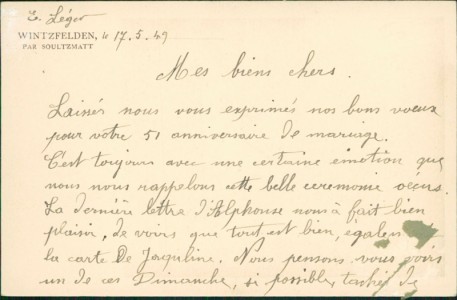 E. Léger
WINTZFELDEN, le 17.5.49
PAR SOULTZMATT
Mes biens chers.
Laisér nous vous exprimés nos bons voeux
pour votre 51 anniversaire de mariage.
C'est toujours avec une certaine émotion que
nous nous rappelons cette belle ceremonie
La dernière lettre d'Alphonse nous à fait bien
plaisir, de voirs que tout est bien,
la carte de Jaquline. Nous pensons vous voirs
un de ces Dimanche, si possible, tachés de